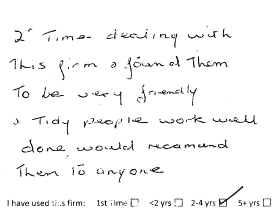 2nd Time dealing with
This firm & found Them
To be very friendly
& Tidy people work well
done would recomand
Them To anyone
I have used this firm: 1st time ☐ <2 yrs ☐ 2-4 yrs ☑ 5+ yrs ☐